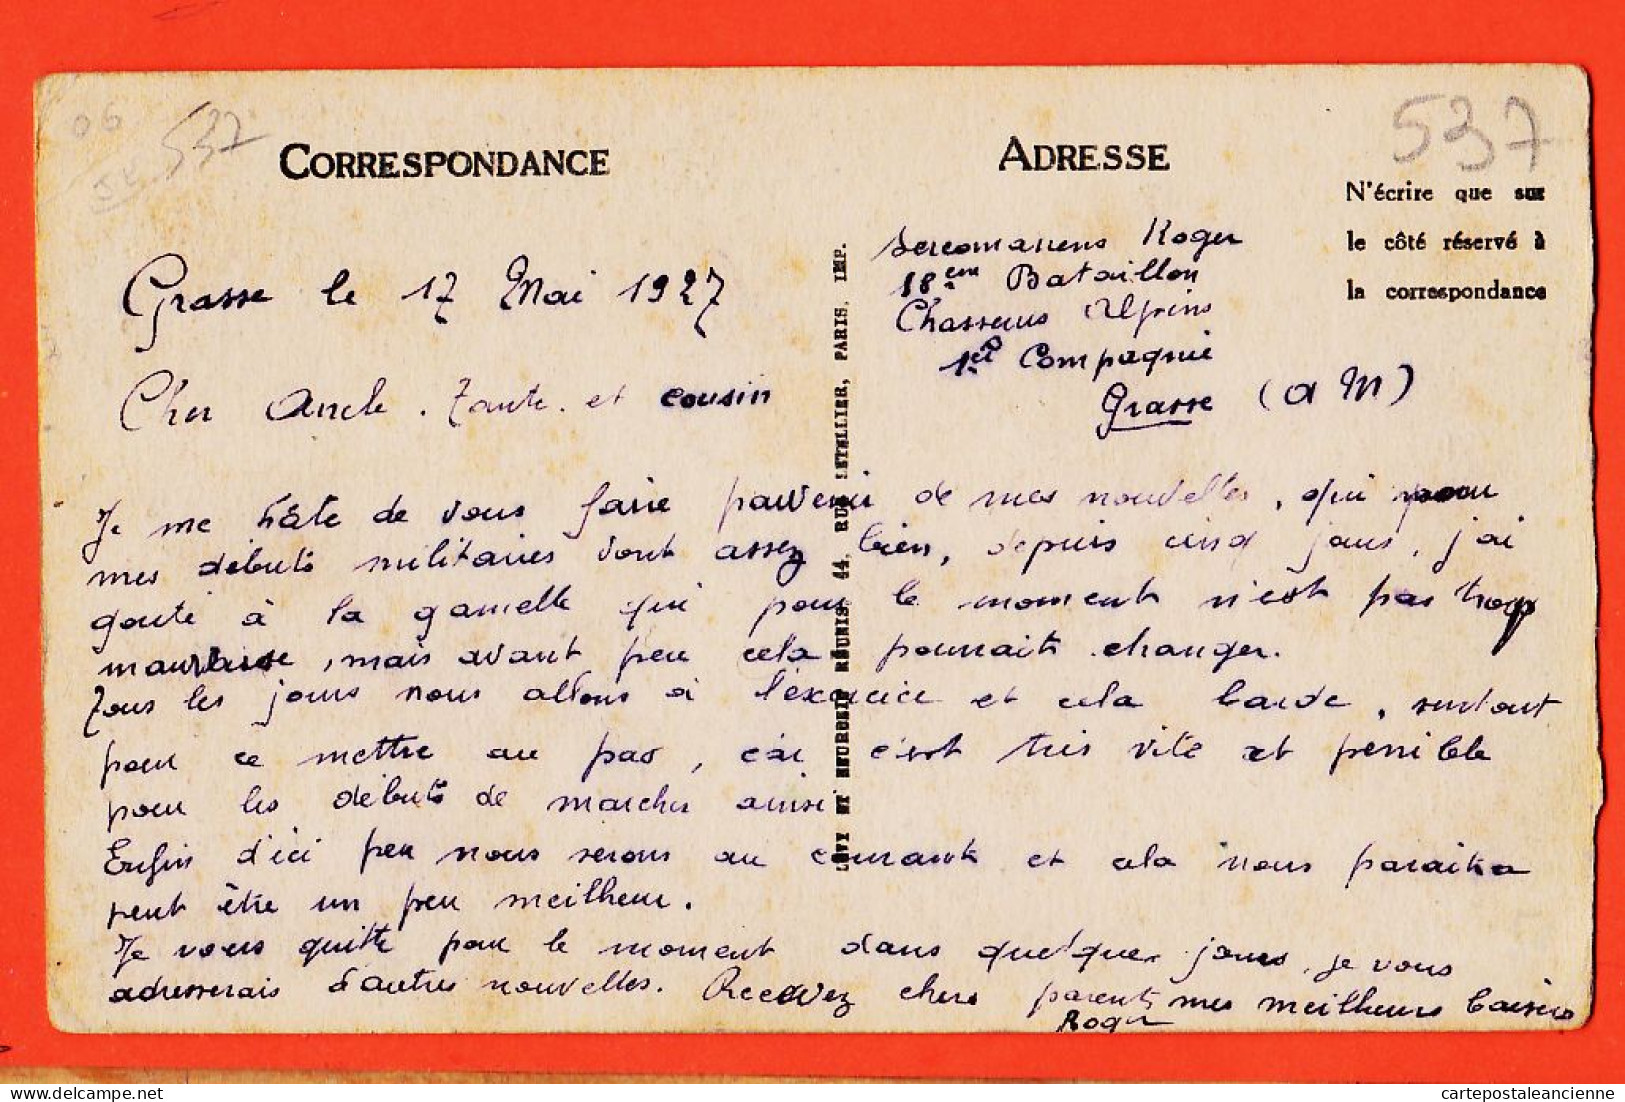 06
537
CORRESPONDANCE
ADRESSE
537
N'écrire que sur
le côté réservé à
la correspondance
Roger
18ème Bataillon
Chasseurs Alpins
1ère Compagnie
Grasse (A M)
Grasse le 17 Mai 1927
Cher Oncle. Tante. et cousin
Je me hâte de vous faire parvenir de mes nouvelles, qui pour
mes débuts militaires vont assez bien, depuis cinq jours, j'ai
gouté à la gamelle qui pour le moment n'est pas trop
mauvaise, mais avant peu cela pourrait changer.
Tous les jours nous allons à l'exercice et cela barde, surtout
pour ce mettre au pas, car c'est très vite et penible
pour les débuts de marcher ainsi
Enfin d'ici peu nous serons au courant et cela nous paraitra
peut être un peu meilheur.
Je vous quitte pour le moment dans quelque jours, je vous
adresserais d'autres nouvelles. Recevez chers parents mes meilheurs baisers
Roger
LÉVY ET NEURDEIN RÉUNIS, 44, RUE LETELLIER, PARIS. IMP.
cartepostaleancienne.com